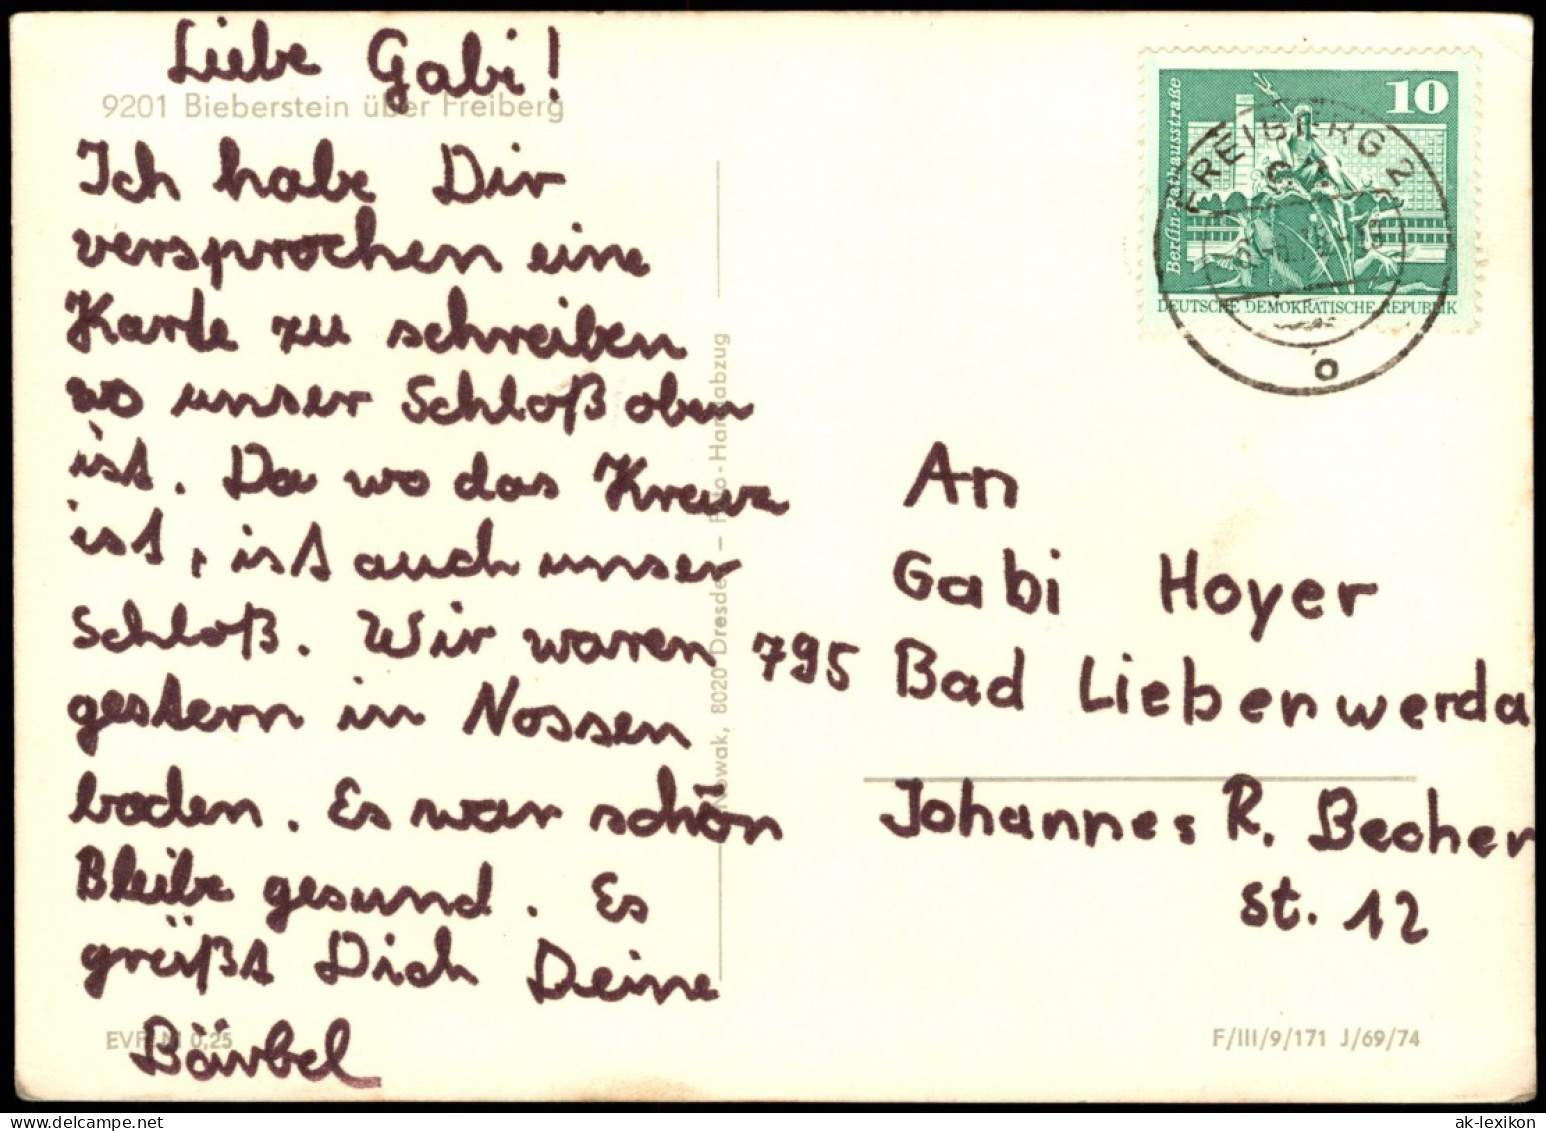 Liebe Gabi!
9201 Bieberstein über Freiberg
Ich habe Dir
versprochen eine
Karte zu schreiben
wo unser Schloß oben
ist. Da wo das Kreuz
ist, ist auch unser
Schloß. Wir waren
gestern in Nossen
baden. Es war schön
Bleibe gesund. Es
grüßt Dich Deine
Bärbel
EVP M 0,25
Nowak, 8020 Dresden – Foto-Handabzug
10
Berlin-Rathausstraße
DEUTSCHE DEMOKRATISCHE REPUBLIK
FREIBERG 2
o
An
Gabi Hoyer
795 Bad Liebenwerda
Johannes R. Becher
St. 12
F/III/9/171 J/69/74
ak-lexikon.com